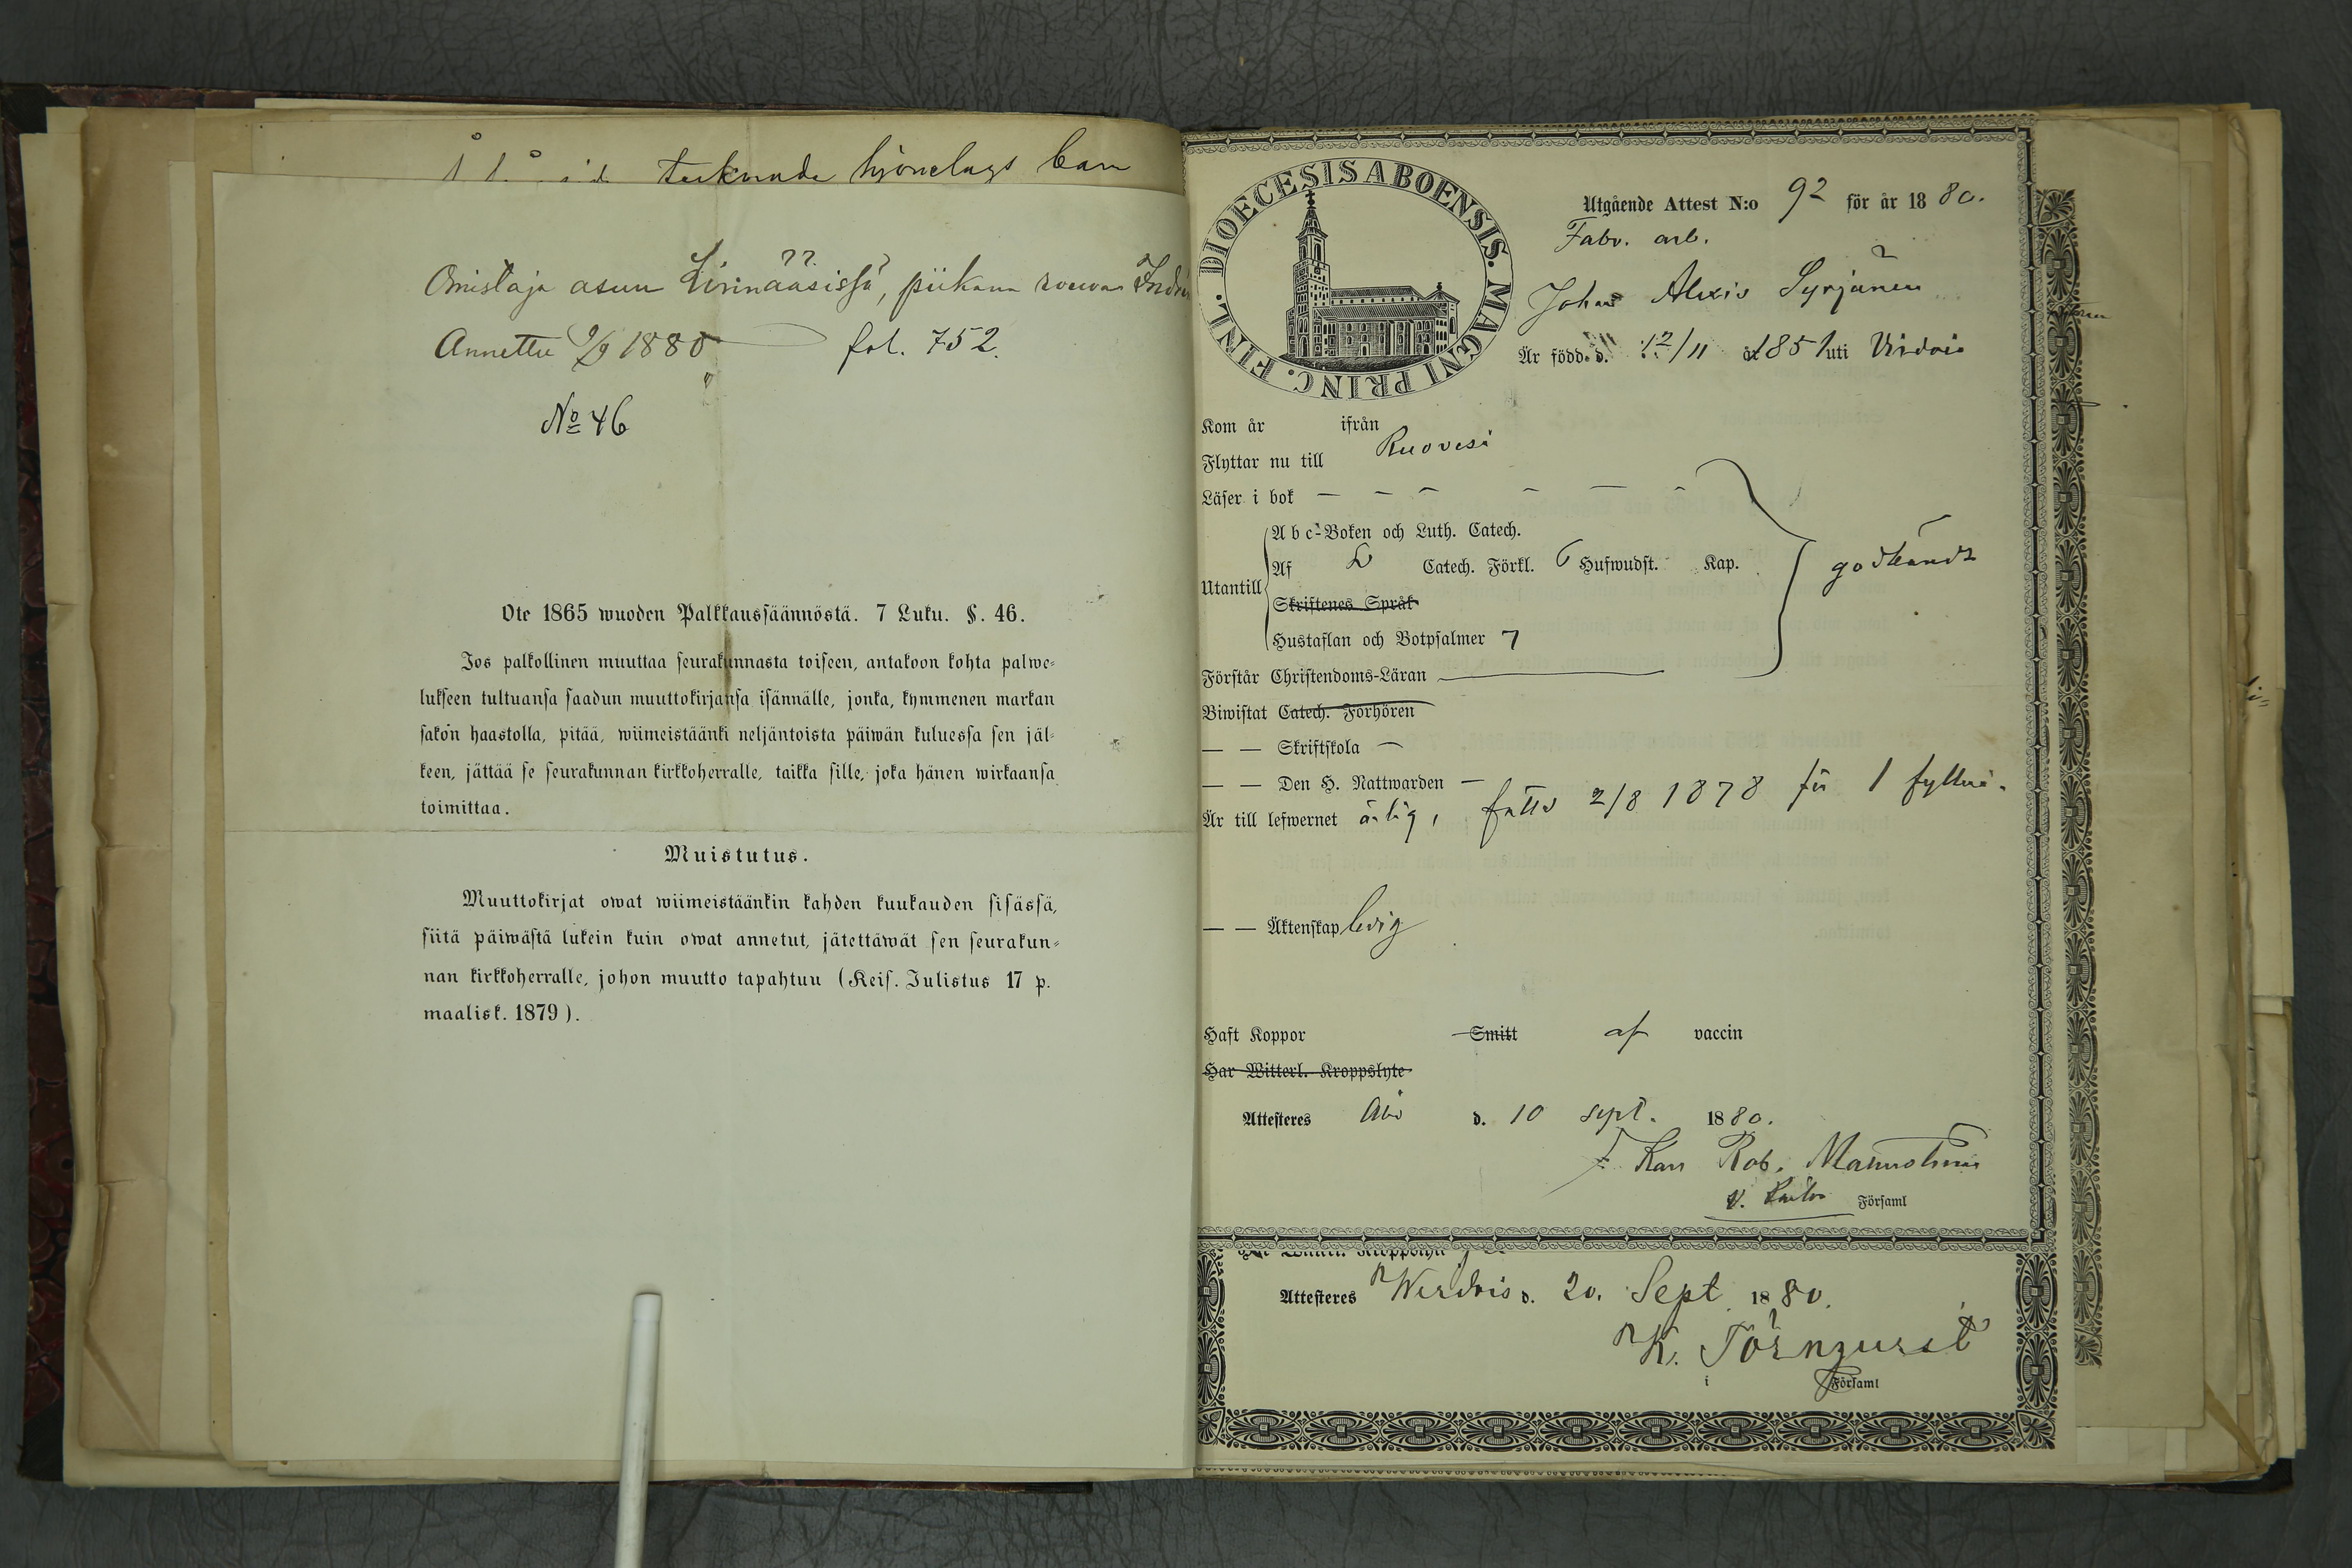 tecknade hjonelags barn
Omistaja asuu Lirinääsissä, piikana rouva
Annettu 9/9 1880 fol. 752.
No 46
Ote 1865 wuoden Palkkaussäännöstä. 7 Luku. §. 46.
Jos palkollinen muuttaa seurakunnasta toiseen, antakoon kohta palwe-
lukseen tultuansa saadun muuttokirjansa isännälle, jonka, kymmenen markan
sakon haastolla, pitää, wiimeistäänki neljäntoista päiwän kuluessa sen jäl-
keen, jättää se seurakunnan kirkkoherralle, taikka sille, joka hänen wirkaansa
toimittaa.
Muistutus.
Muuttokirjat owat wiimeistäänkin kahden kuukauden sisässä,
siitä päiwästä lukein kuin owat annetut, jätettäwät sen seurakun-
nan kirkkoherralle, johon muutto tapahtuu (Keis. Julistus 17 p.
maalisk. 1879).
DIOECESIS ABOENSIS. MAGNI PRINC. FINL.
Utgående Attest N:o 92 för år 1880.
Fabr. arb.
Johan Alexis Syrjänen
Är född d. 12/11 1851 uti Virdois
Kom år ifrån
Flyttar nu till Ruovesi
Läser i bok
Utantill
Abc-Boken och Luth. Catech.
Af L Catech. Förkl. 6 Hufwudst. Kap.
Skriftenes Språk
Hustaflan och Botpsalmer 7
godkändt
Förstår Christendoms-Läran
Biwistat Catech. Förhören
— — Skriftskola —
— — Den H. Nattwarden —
Är till lefwernet ärlig, fälld 2/8 1878 för 1 fylleri.
— — Äktenskap ledig
Haft Koppor Smitt af vaccin
Har Witterl. Kroppslyte
Attesteres Åbo d. 10 sept. 1880.
Karl Rob. Malmström
v. Pastor Församl
Attesteres Wirdois d. 20. Sept 1880.
K. Törnqvist
i Församl